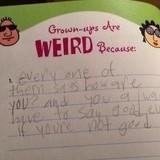 Grown-ups Are
WEIRD Because:
1. every one of
them says how are
you? and you always
have to say good
if you're not good